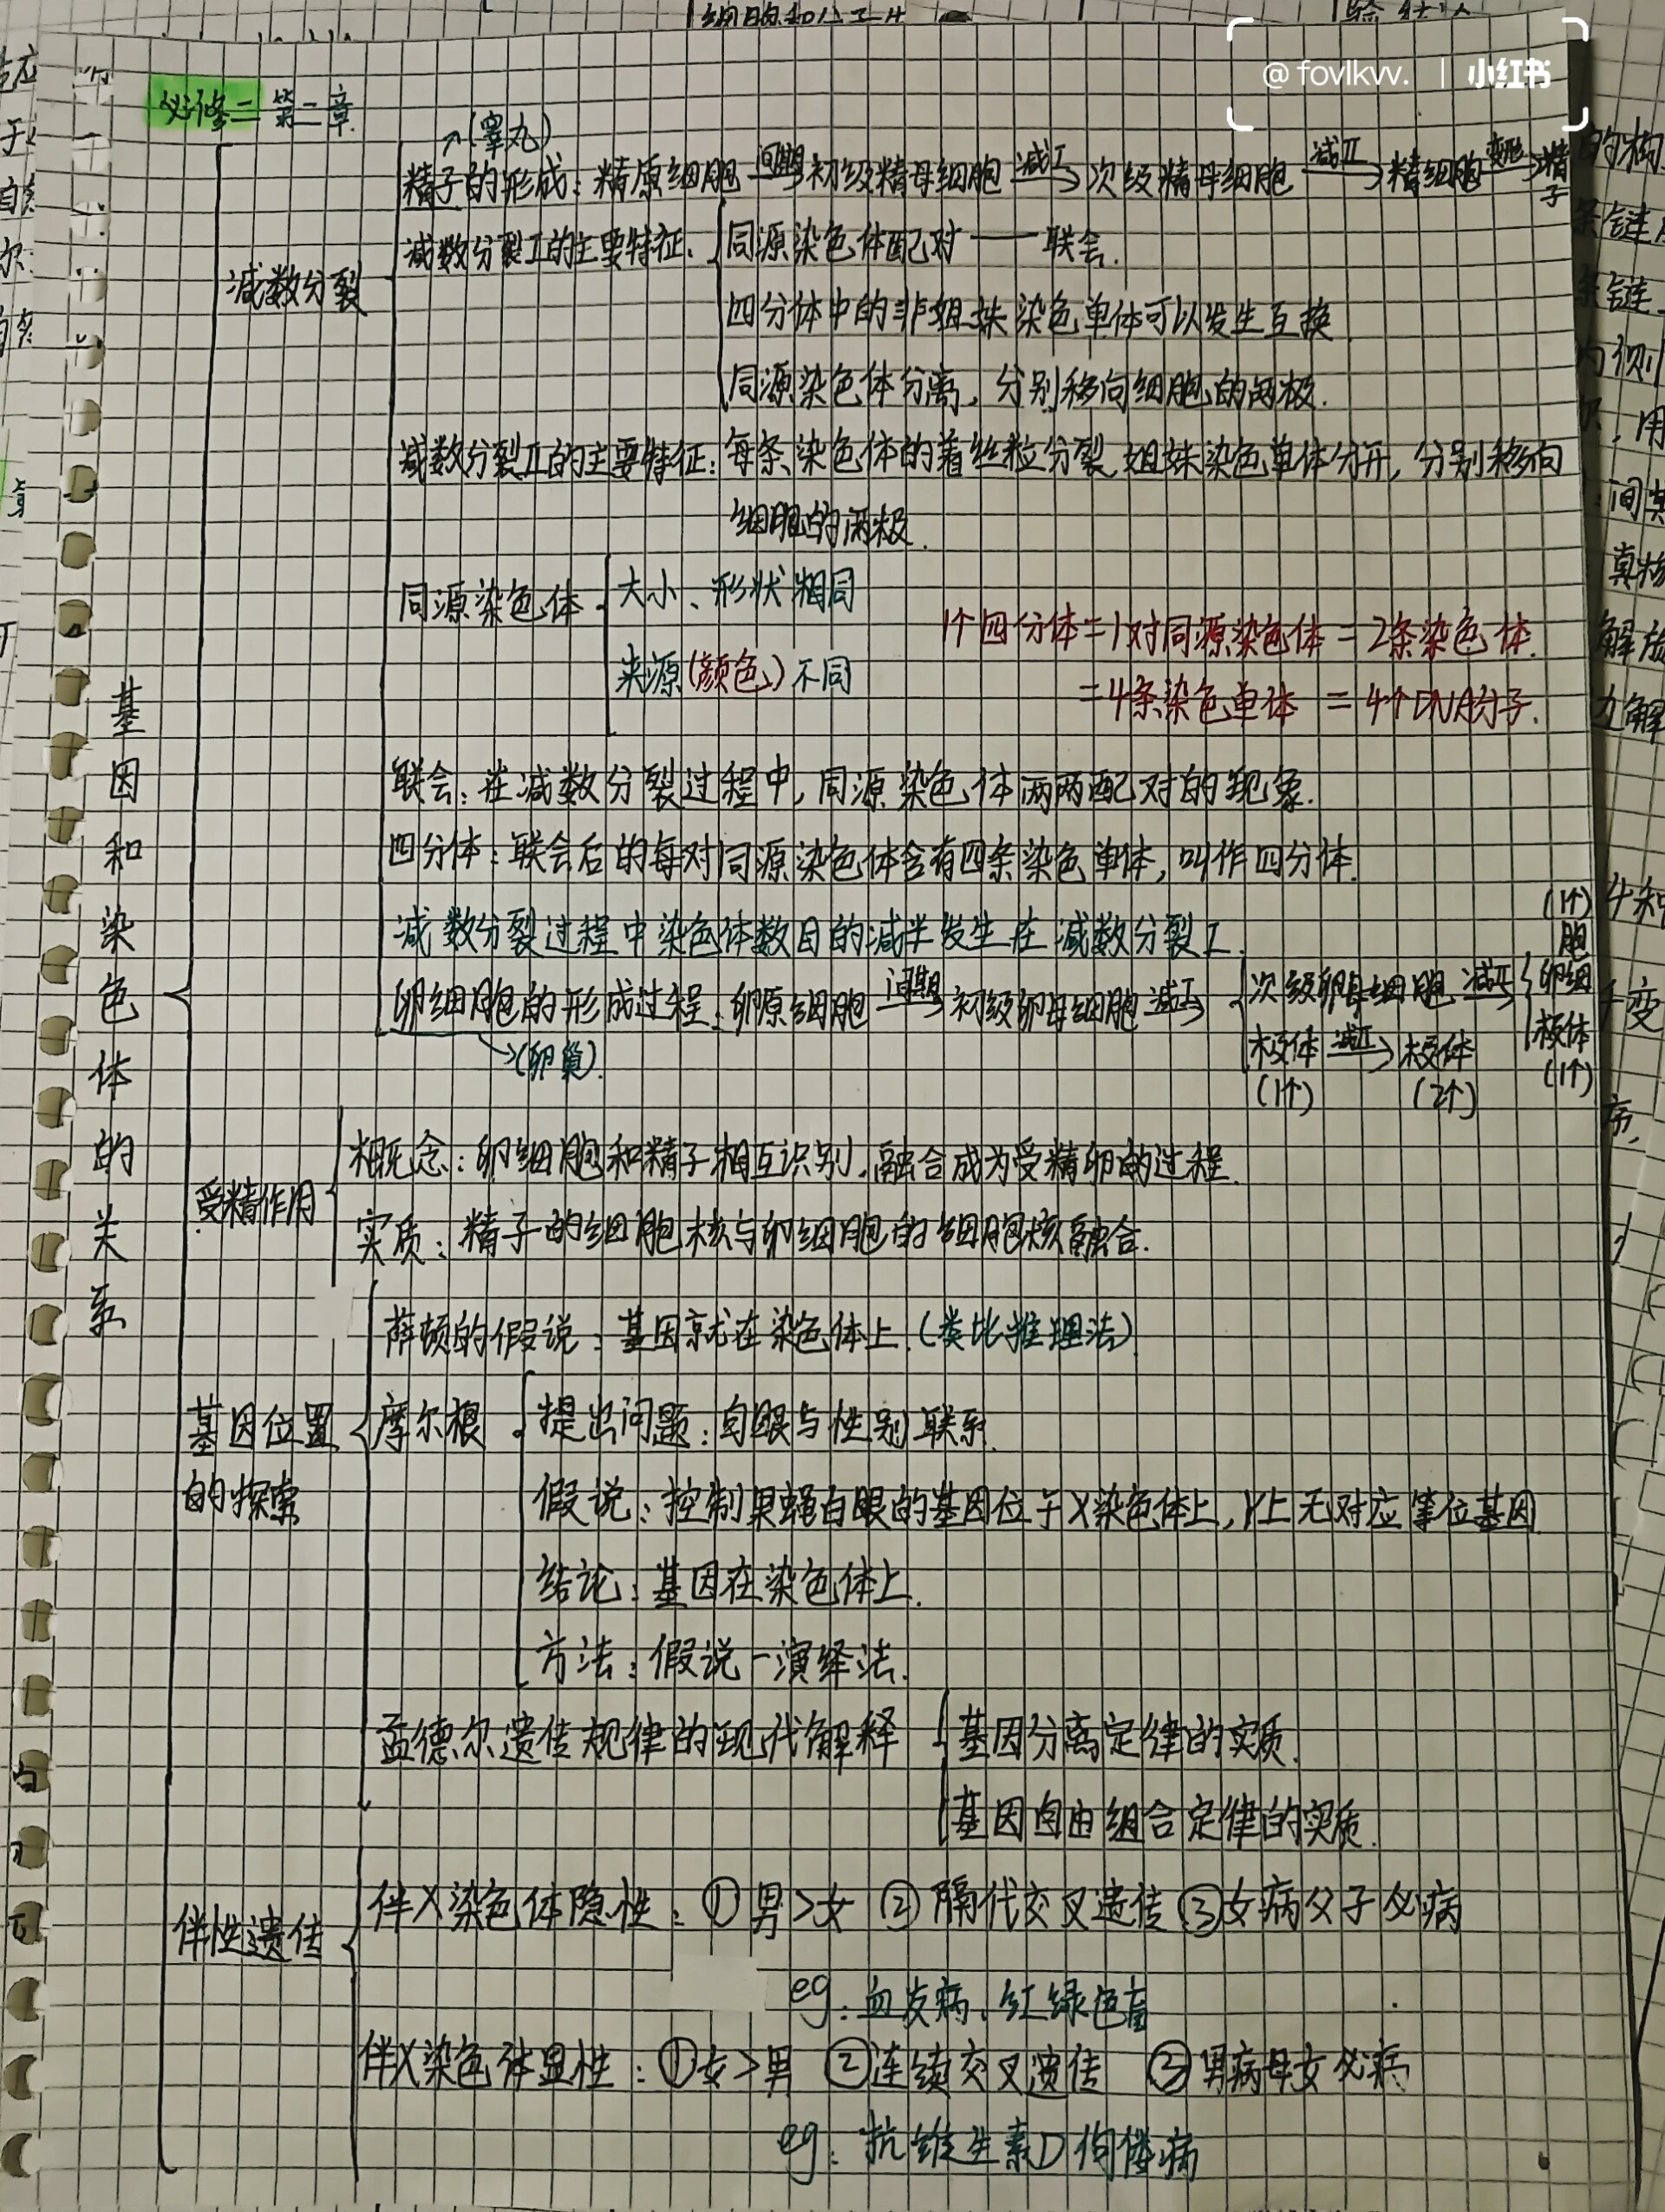 @fovlkvv. | 小红书
必修二 第二章
基因和染色体的关系
减数分裂
(睾丸)
精子的形成：精原细胞 间期→ 初级精母细胞 减Ⅰ→ 次级精母细胞 减Ⅱ→ 精细胞 变形→ 精子
减数分裂Ⅰ的主要特征：同源染色体配对——联会.
四分体中的非姐妹染色单体可以发生互换
同源染色体分离，分别移向细胞的两极.
减数分裂Ⅱ的主要特征：每条染色体的着丝粒分裂,姐妹染色单体分开，分别移向
细胞的两极.
同源染色体 大小、形状相同
来源(颜色)不同
1个四分体=1对同源染色体=2条染色体.
=4条染色单体 =4个DNA分子.
联会：在减数分裂过程中，同源染色体两两配对的现象.
四分体：联会后的每对同源染色体含有四条染色单体，叫作四分体.
减数分裂过程中染色体数目的减半发生在减数分裂Ⅰ.
卵细胞的形成过程：卵原细胞 间期→ 初级卵母细胞 减Ⅰ→ 次级卵母细胞 减Ⅱ→ 卵细胞(1个)
极体(1个)
极体 减Ⅱ→ 极体
(1个) (2个)
(卵巢).
受精作用
概念：卵细胞和精子相互识别，融合成为受精卵的过程.
实质：精子的细胞核与卵细胞的细胞核融合.
基因位置的探索
薛顿的假说：基因就在染色体上.(类比推理法)
摩尔根 提出问题：白眼与性别联系.
假说：控制果蝇白眼的基因位于X染色体上，Y上无对应等位基因.
结论：基因在染色体上.
方法：假说—演绎法.
孟德尔遗传规律的现代解释 基因分离定律的实质.
基因自由组合定律的实质.
伴性遗传
伴X染色体隐性：①男>女 ②隔代交叉遗传 ③女病父子必病
eg：血友病、红绿色盲
伴X染色体显性：①女>男 ②连续交叉遗传 ③男病母女必病
eg：抗维生素D佝偻病